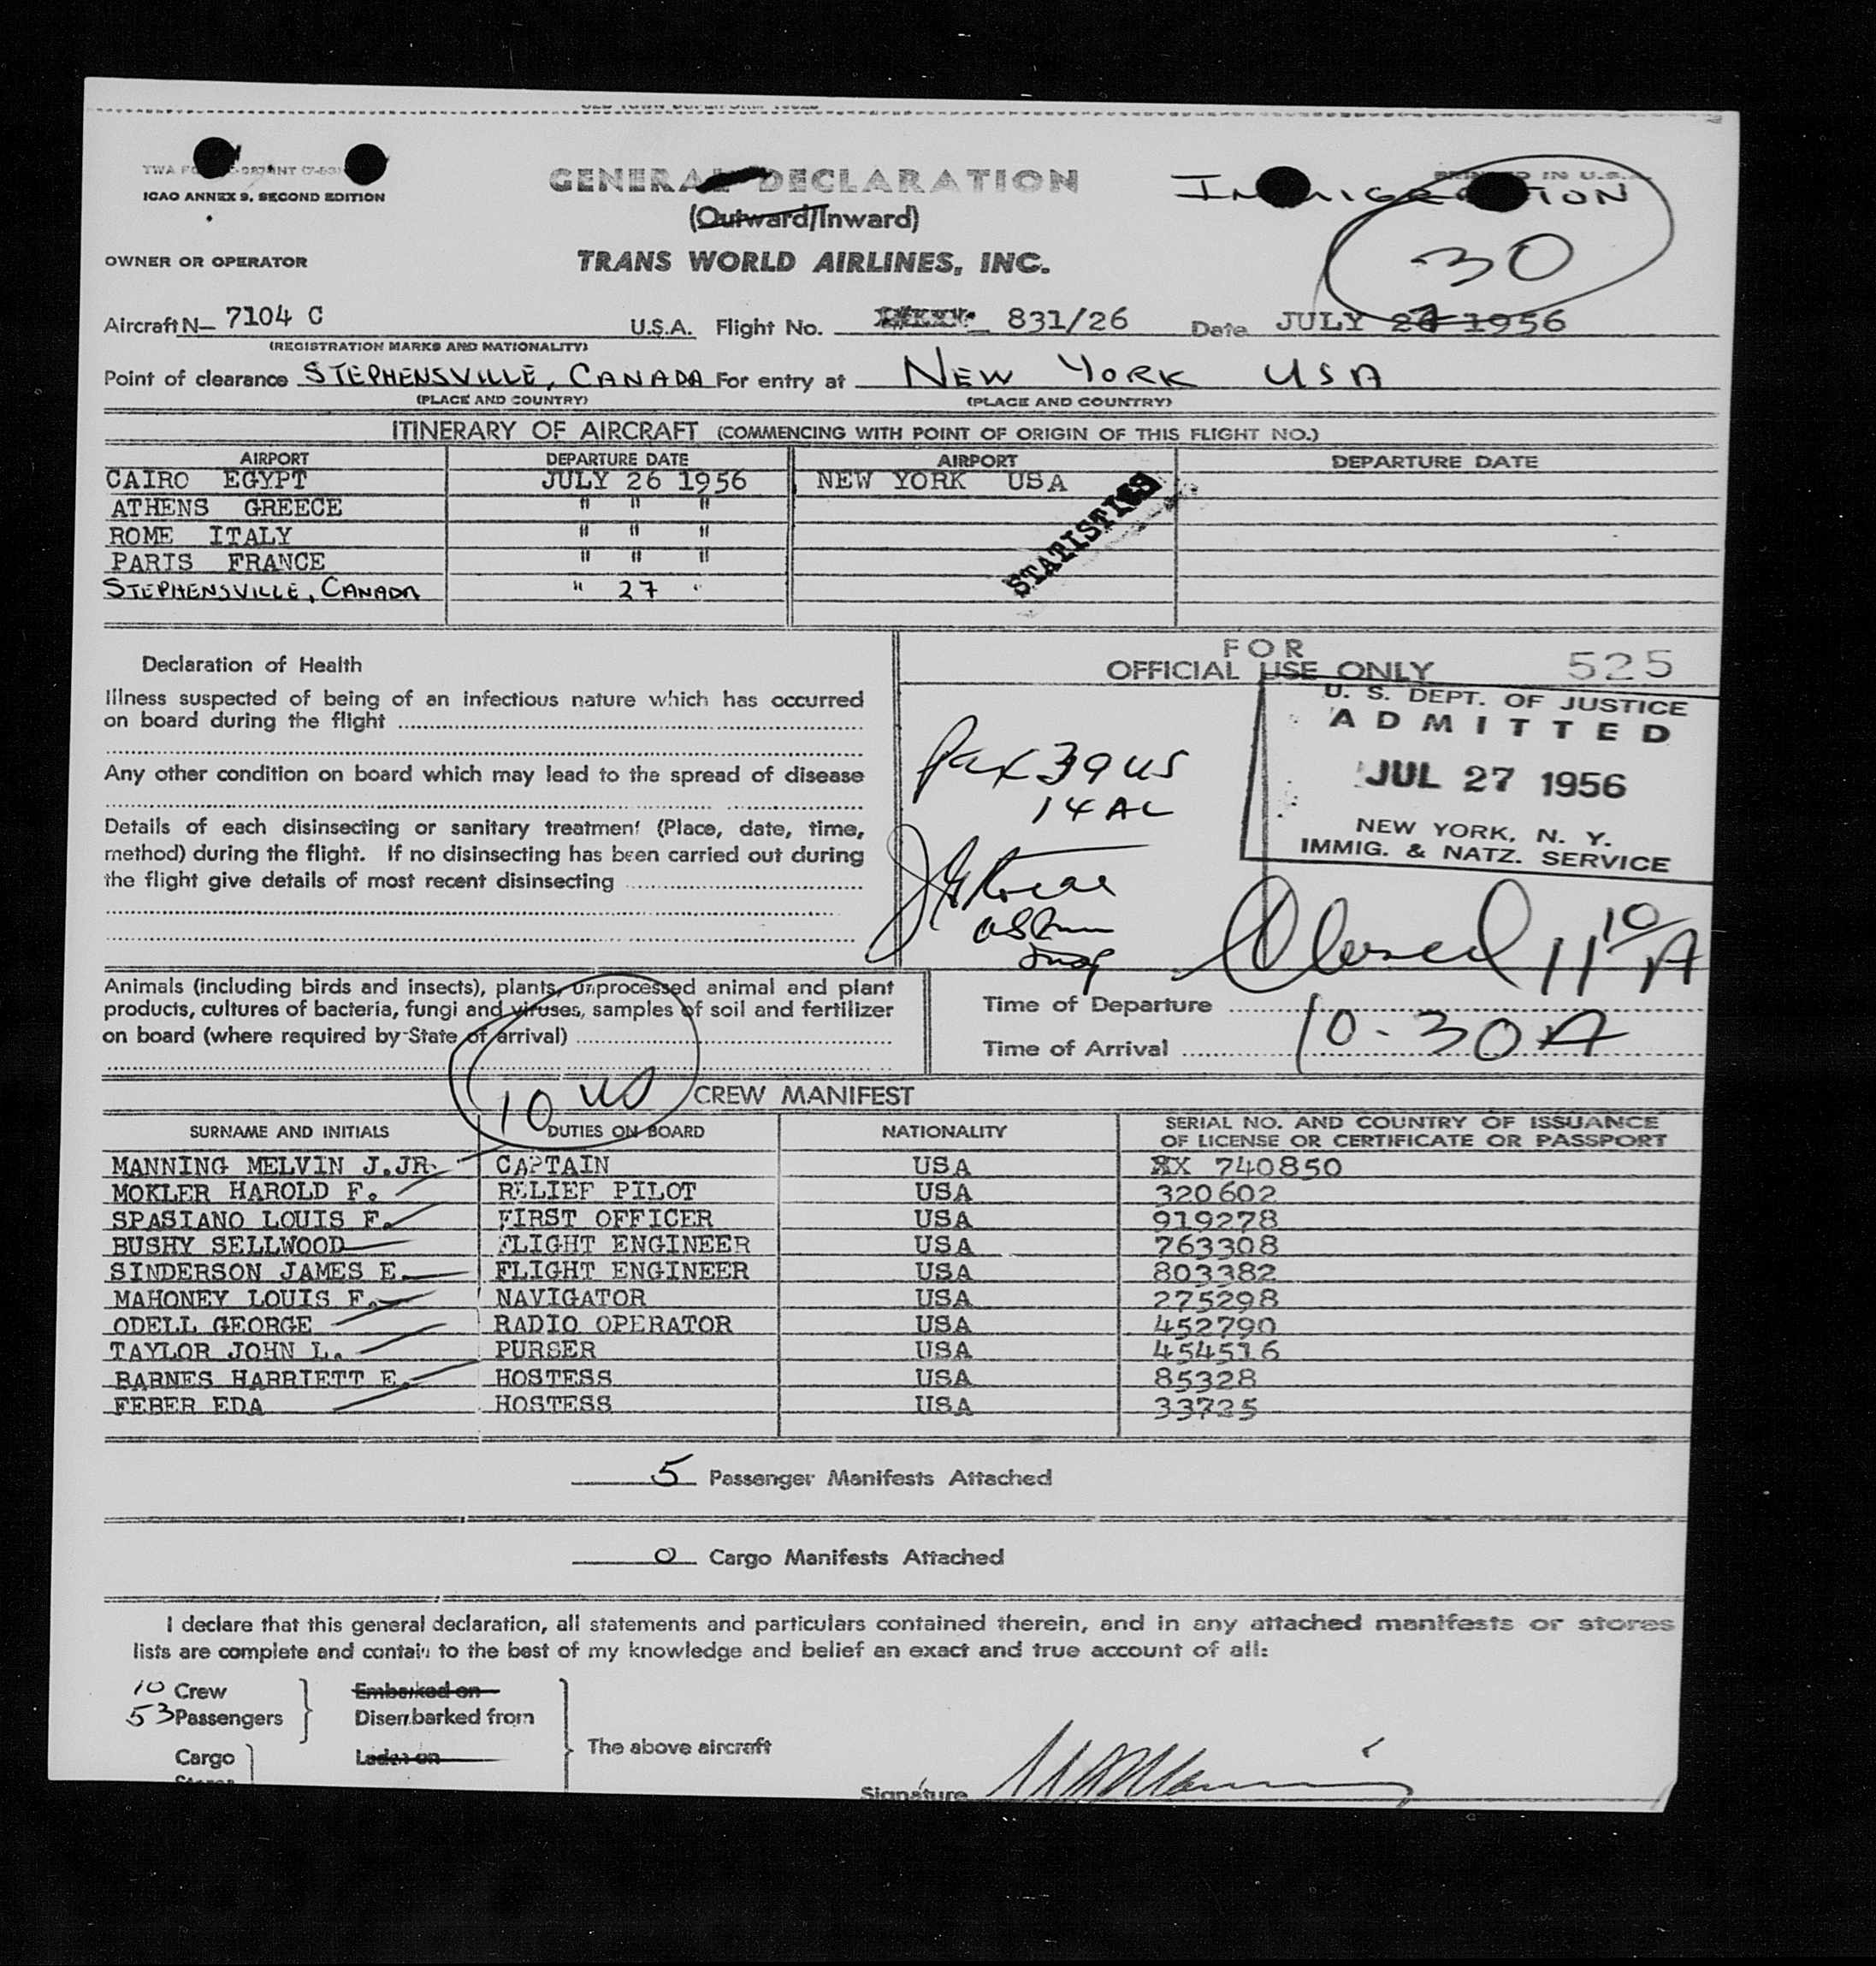 GENERAL DECLARATION
IMMIGRATION
ICAO ANNEX 9, SECOND EDITION
(Outward/Inward)
30
OWNER OR OPERATOR
TRANS WORLD AIRLINES, INC.
Aircraft N— 7104 C U.S.A. Flight No. 831/26 Date JULY 27 1956
(REGISTRATION MARKS AND NATIONALITY)
Point of clearance STEPHENSVILLE, CANADA For entry at NEW YORK USA
(PLACE AND COUNTRY) (PLACE AND COUNTRY)
ITINERARY OF AIRCRAFT (COMMENCING WITH POINT OF ORIGIN OF THIS FLIGHT NO.)
AIRPORT DEPARTURE DATE AIRPORT DEPARTURE DATE
CAIRO EGYPT JULY 26 1956 NEW YORK USA
ATHENS GREECE " " "
ROME ITALY " " "
PARIS FRANCE " " "
STEPHENSVILLE, CANADA " 27 "
STATISTICS
Declaration of Health
Illness suspected of being of an infectious nature which has occurred
on board during the flight
Any other condition on board which may lead to the spread of disease
Details of each disinsecting or sanitary treatment (Place, date, time,
method) during the flight. If no disinsecting has been carried out during
the flight give details of most recent disinsecting
FOR
OFFICIAL USE ONLY 525
U. S. DEPT. OF JUSTICE
ADMITTED
JUL 27 1956
NEW YORK, N. Y.
IMMIG. & NATZ. SERVICE
Pax 39 US
14 AL
Closed 11 10/A
Animals (including birds and insects), plants, unprocessed animal and plant
products, cultures of bacteria, fungi and viruses, samples of soil and fertilizer
on board (where required by State of arrival)
Time of Departure
Time of Arrival 10-30 A
10 US
CREW MANIFEST
SURNAME AND INITIALS DUTIES ON BOARD NATIONALITY SERIAL NO. AND COUNTRY OF ISSUANCE
OF LICENSE OR CERTIFICATE OR PASSPORT
MANNING MELVIN J.JR. CAPTAIN USA XX 740850
MOKLER HAROLD F. RELIEF PILOT USA 320602
SPASIANO LOUIS F. FIRST OFFICER USA 919278
BUSHY SELLWOOD FLIGHT ENGINEER USA 763308
SINDERSON JAMES E. FLIGHT ENGINEER USA 803382
MAHONEY LOUIS F. NAVIGATOR USA 275298
ODELL GEORGE RADIO OPERATOR USA 452790
TAYLOR JOHN L. PURSER USA 454516
BARNES HARRIETT E. HOSTESS USA 85328
FEBER EDA HOSTESS USA 33725
5 Passenger Manifests Attached
0 Cargo Manifests Attached
I declare that this general declaration, all statements and particulars contained therein, and in any attached manifests or stores
lists are complete and contain to the best of my knowledge and belief an exact and true account of all:
10 Crew Embarked on
53 Passengers Disembarked from
The above aircraft
Cargo Laden on
Stores
Signature